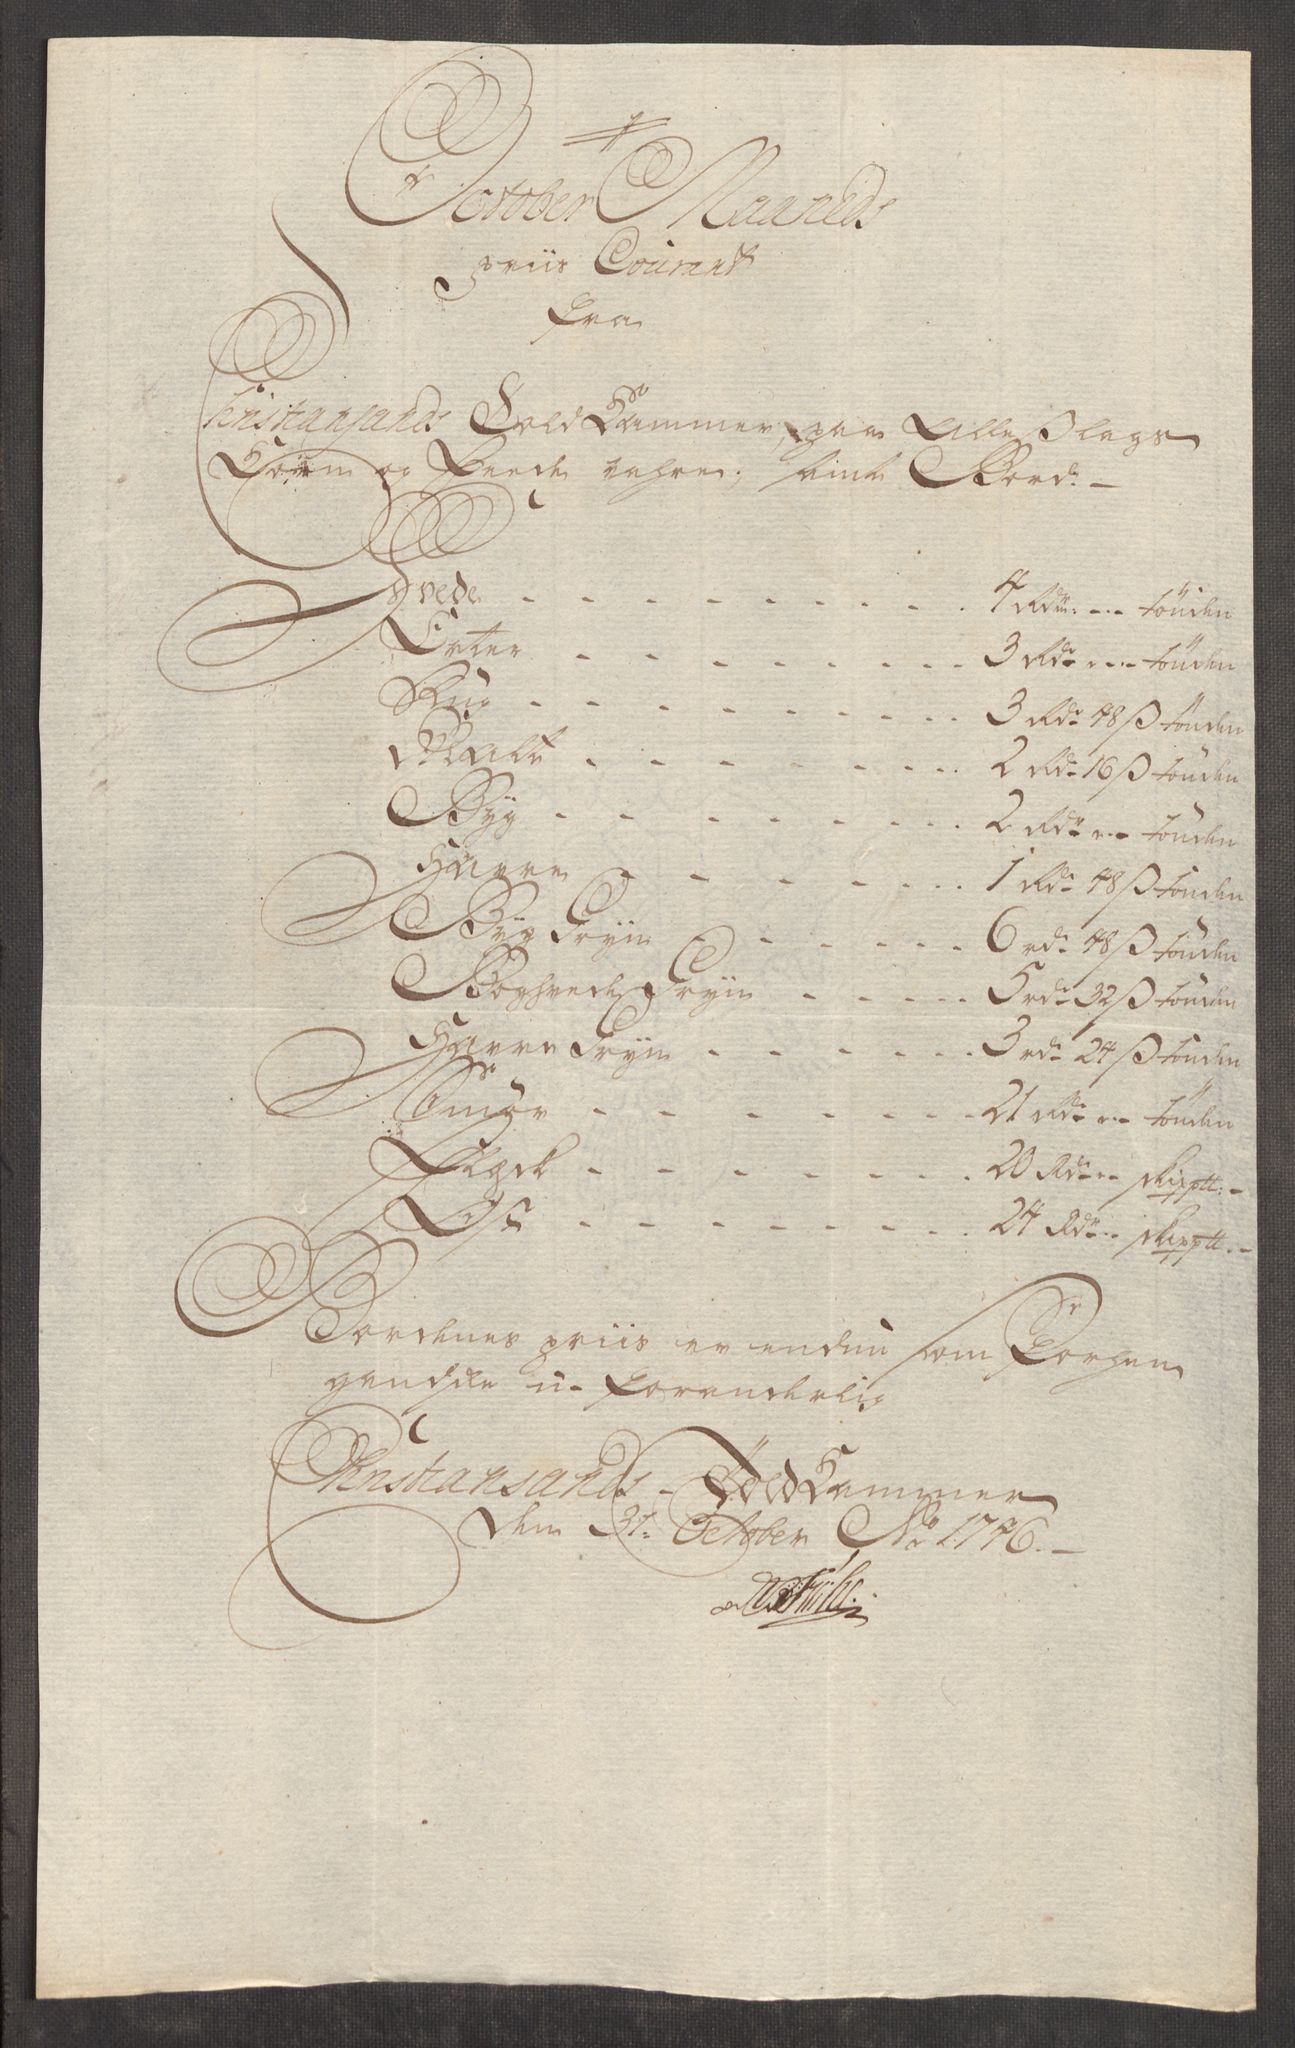 October Maaneds
priis Courant
fra
Christiansands Told Kammer, paa Alle Slags
Korn og Feede vahre, samt Bord. -
Hvede - - - - - - - - - 4 Rdr. - - - tönden
Erter - - - - - - - - - 3 Rdr - - - tönden
Rug - - - - - - - - - 3 Rdr 48 ß tönden
Malt - - - - - - - - 2 Rdr 16 ß tönden
Byg - - - - - - - - - 2 Rdr - - - tönden
Havre - - - - - - - - 1 Rdr 48 ß tönden
Byg Gryn - - - - - - - 6 rdr 48 ß tönden
Boghvede Gryn - - - - - 5 rdr 32 ß tönden
Havre Gryn - - - - - - - 3 rdr 24 ß tönden
Smör - - - - - - - - - 21 Rdr - - tönden
Flæsk - - - - - - - - 20 Rdr - - skiptt. -
Ost - - - - - - - - - 24 Rdr - - skiptt. -
Bordenes priis er endnu som Forhen
gandske u-foranderlig
Christiansands - Told Kammer
den 31. October Ao 1746. -